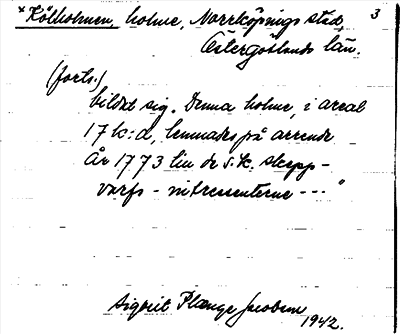 *Kölholmen, holme, Norrköpings stad, 3
Östergötlands län.
(forts.)
bildat sig. Denna holme, i areal
17 k:d, lemnades på arrende
År 1773 till de s.k. skepp-
varfs-intressenterne --- "
Sigbrit Plænge Jacobson
1942.